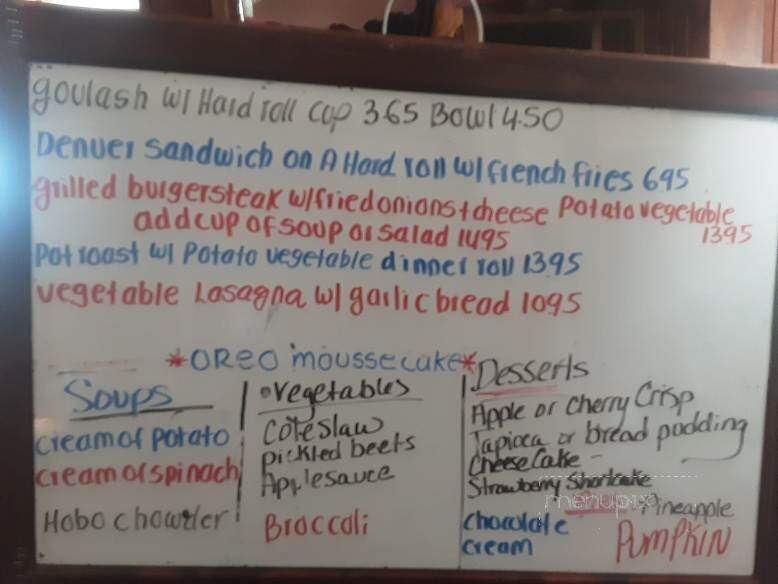 goulash w/ Hard roll cup 365 Bowl 4.50
Denver sandwich on A Hard roll w/ french fries 695
grilled burgersteak w/ fried onions + cheese Potato vegetable
add cup of soup or salad 1495 1395
Pot roast w/ Potato vegetable dinner roll 1395
vegetable Lasagna w/ garlic bread 1095
*OREO mousse cake*
Soups
cream of potato
cream of spinach
Hobo chowder
vegetables
Coleslaw
pickled beets
Applesauce
Broccoli
Desserts
Apple or Cherry Crisp
Tapioca or bread pudding
Cheese Cake -
Strawberry Shortcake
menupix
Pineapple
Chocolate
cream
PUMPKIN